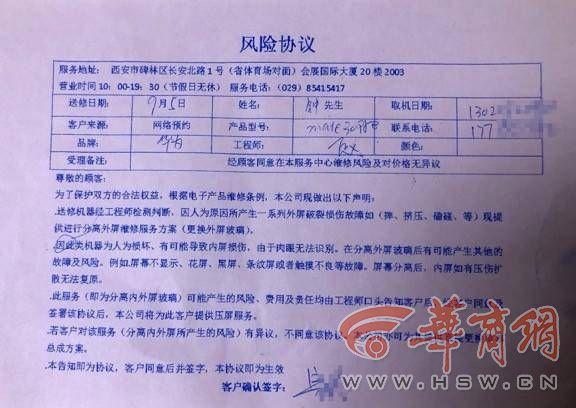 风险协议
服务地址: 西安市碑林区长安北路1号(省体育场对面)会展国际大厦20楼2003
营业时间10:00-19:30(节假日无休) 服务电话:(029)85415417
送修日期: 9月5日 姓名: 先生 取机日期: 1302
客户来源: 网络预约 产品型号: mate30 联系电话: 177
品牌: 华为 工程师: 颜色:
受理备注: 经顾客同意在本服务中心维修风险及对价格无异议
尊敬的顾客:
为了保护双方的合法权益,根据电子产品维修条例,本公司现做出以下声明:
.送修机器经工程师检测判断,因人为原因所产生一系列外屏破裂损伤故障如(摔、挤压、磕碰、等)现提
供进行分离外屏维修服务方案(更换外屏玻璃)。
因此类机器为人为损坏、有可能导致内屏损伤,由于肉眼无法识别。在分离外屏玻璃后有可能产生其他的
故障及风险。例如.屏幕不显示、花屏、黑屏、条纹屏或者触摸不良等故障。屏幕分离后,内屏如有压伤扩
散无法复原。
.此服务(即为分离内外屏玻璃)可能产生的风险、费用及责任均由工程师口头告知客户后
签署该协议后,本公司将为此客户提供压屏服务。
.若客户对该服务(分离内外屏所产生的风险)有异议,不同意该协议。
总成方案。
.本告知即为协议,客户同意后并签字,本协议即为生效
客户确认签字:
华商网
WWW.HSW.CN